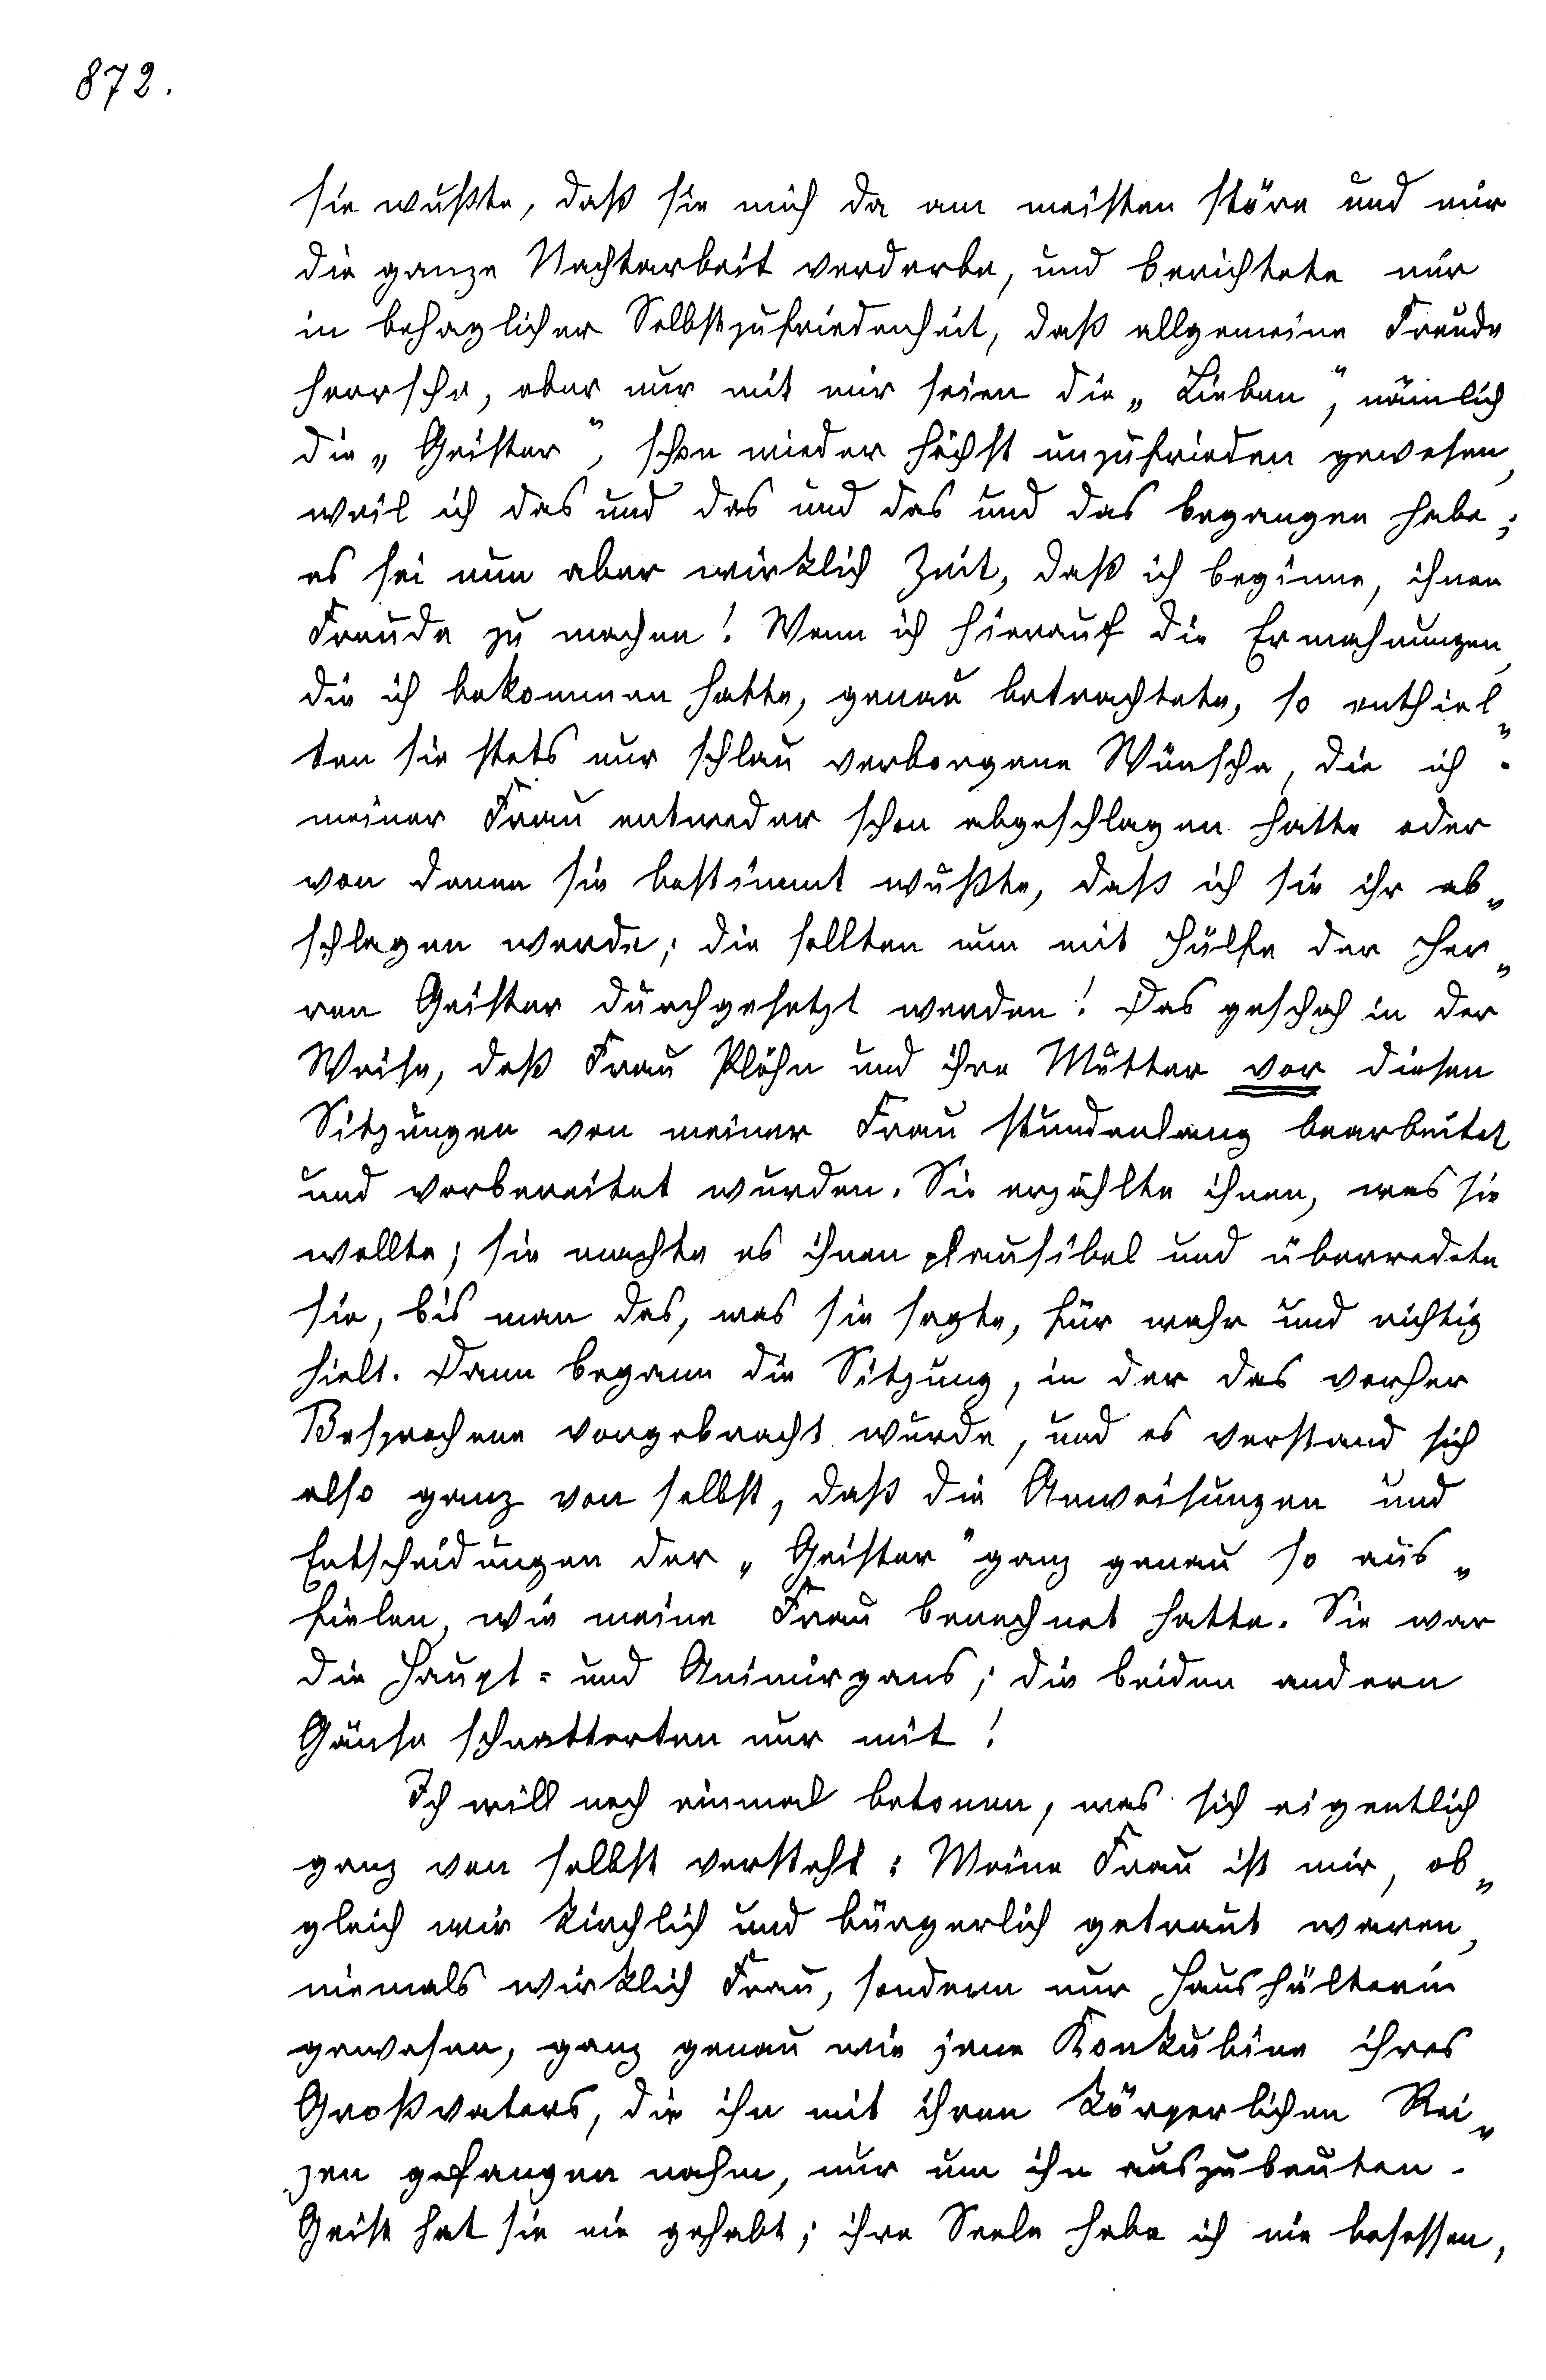 872.
sie wußte, daß sie mich da am meisten störe und mir
die ganze Nachtarbeit verderbe, und berichtete mir
in behaglicher Selbstzufriedenheit, daß allgemeine Freude
herrsche, aber nur mit mir seien die „Lieben“, nämlich
die „Geister“, schon wieder höchst unzufrieden gewesen,
weil ich das und das und das und das begangen habe;
es sei nun aber wirklich Zeit, daß ich beginne, ihnen
Freude zu machen! Wenn ich hierauf die Ermahnungen,
die ich bekommen hatte, genau betrachtete, so enthiel„
ten sie stets nur schlau verborgene Wünsche, die ich
meiner Frau entweder schon abgeschlagen hatte oder
von denen sie bestimmt wußte, daß ich sie ihr ab„
schlagen werde; die sollten nun mit Hülfe der Her„
ren Geister durchgesetzt werden! Das geschah in der
Weise, daß Frau Plöhn und ihre Mutter vor diesen
Sitzungen von meiner Frau stundenlang bearbeitet
und vorbereitet wurden. Sie erzählte ihnen, was sie
wollte; sie machte es ihnen plausibel und überredete
sie, bis man das, was sie sagte, für wahr und richtig
hielt. Dann begann die Sitzung, in der das vorher
Besprochene vorgebracht wurde, und es verstand sich
also ganz von selbst, daß die Anweisungen und
Entscheidungen der „Geister“ ganz genau so aus„
fielen, wie meine Frau berechnet hatte. Sie war
die Haupt- und Animirgans; die beiden andern
Gänse schnatterten nur mit!
Ich will noch einmal betonen, was sich eigentlich
ganz von selbst versteht: Meine Frau ist mir, ob„
gleich wir kirchlich und bürgerlich getraut waren,
niemals wirklich Frau, sondern nur Haushälterin
gewesen, ganz genau wie jene Konkubine ihres
Großvaters, die ihn mit ihren körperlichen Rei„
zen gefangen nahm, nur um ihn auszubeuten.
Geist hat sie nie gehabt; ihre Seele habe ich nie besessen,